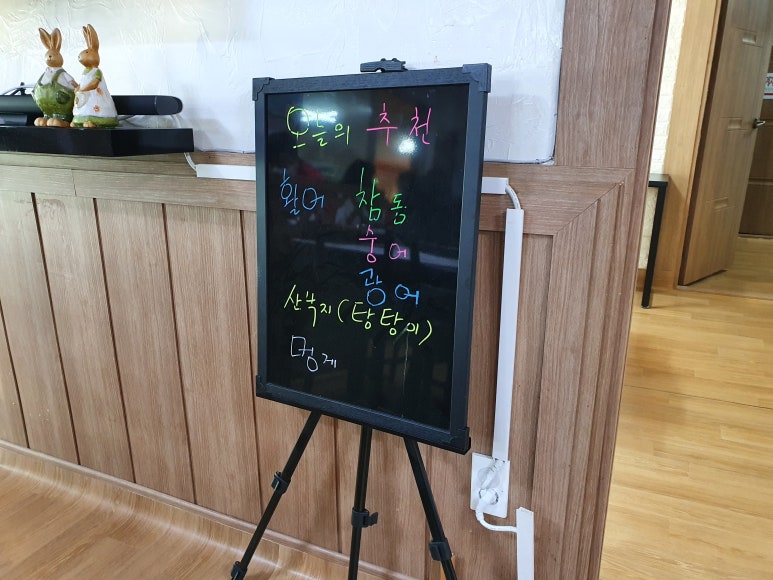 오늘의 추천
활어 참돔
숭어
광어
산낙지(탕탕이)
멍게